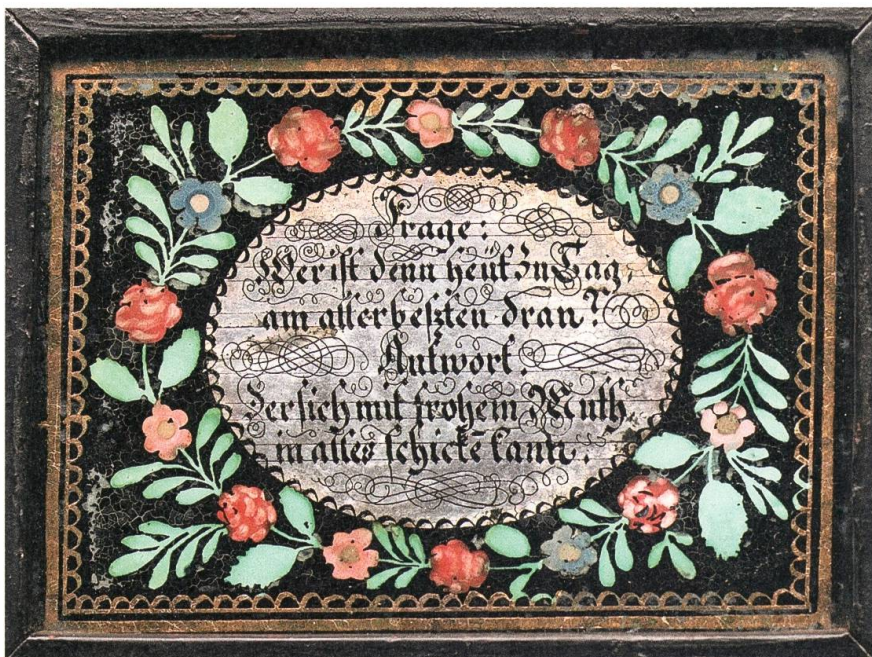 Frage:
Wer ist denn heüt zu Tag,
am allerbeszten dran?
Antwort.
Der sich mit frohem Muth,
in alles schickē kann.